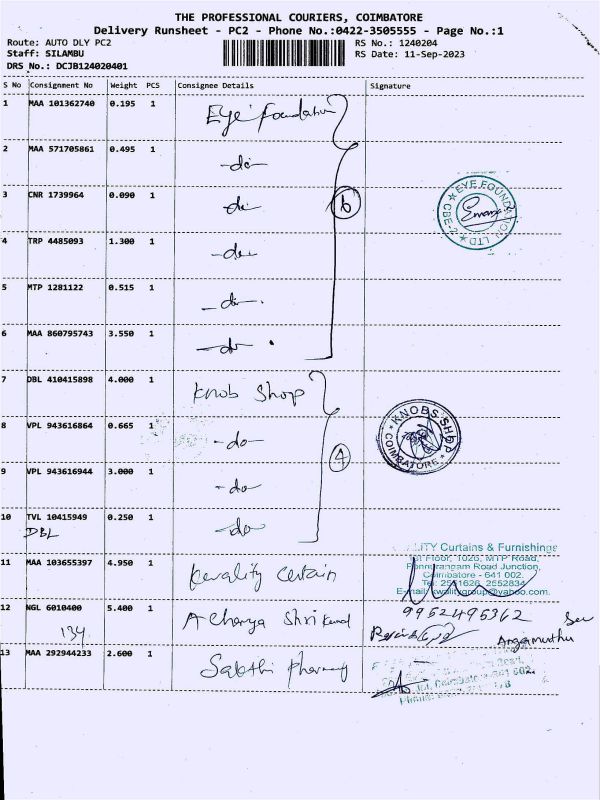 THE PROFESSIONAL COURIERS, COIMBATORE
Delivery Runsheet - PC2 - Phone No.:0422-3505555 - Page No.:1
Route: AUTO DLY PC2
RS No.: 1240204
Staff: SILAMBU
RS Date: 11-Sep-2023
DRS No.: DCJB124020401
S No Consignment No Weight PCS Consignee Details Signature
1 MAA 101362740 0.195 1 Eye Foundation
2 MAA 571705861 0.495 1 -do-
3 CNR 1739964 0.090 1 -do-
6
EYE FOUNDATION LTD
CBE-2
4 TRP 4485093 1.300 1 -do-
5 MTP 1281122 0.515 1 -do-
6 MAA 860795743 3.550 1 -do-
7 DBL 410415898 4.000 1 Knob Shop
8 VPL 943616864 0.665 1 -do-
4
KNOBS SHOP
COIMBATORE
9 VPL 943616944 3.000 1 -do-
10 TVL 10415949 0.250 1 -do-
DBL
LITY Curtains & Furnishings
1st Floor, 1026, MTP Road,
Ponnurangam Road Junction,
Coimbatore - 641 002.
Tel: 2541626, 2552834
E-mail: kwalitygroup@yahoo.com.
11 MAA 103655397 4.950 1 kwality certain
12 NGL 6010400 5.400 1 Acharya Shri
134
9952495362
13 MAA 292944233 2.600 1 Sakthi Pharmacy